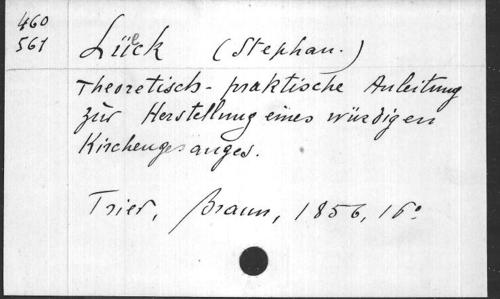 460
561
Lück (Stephan.)
Theoretisch-praktische Anleitung
zür Herstellung eines würdigen
Kirchengesanges.
Trier, Braun, 1856, 16°